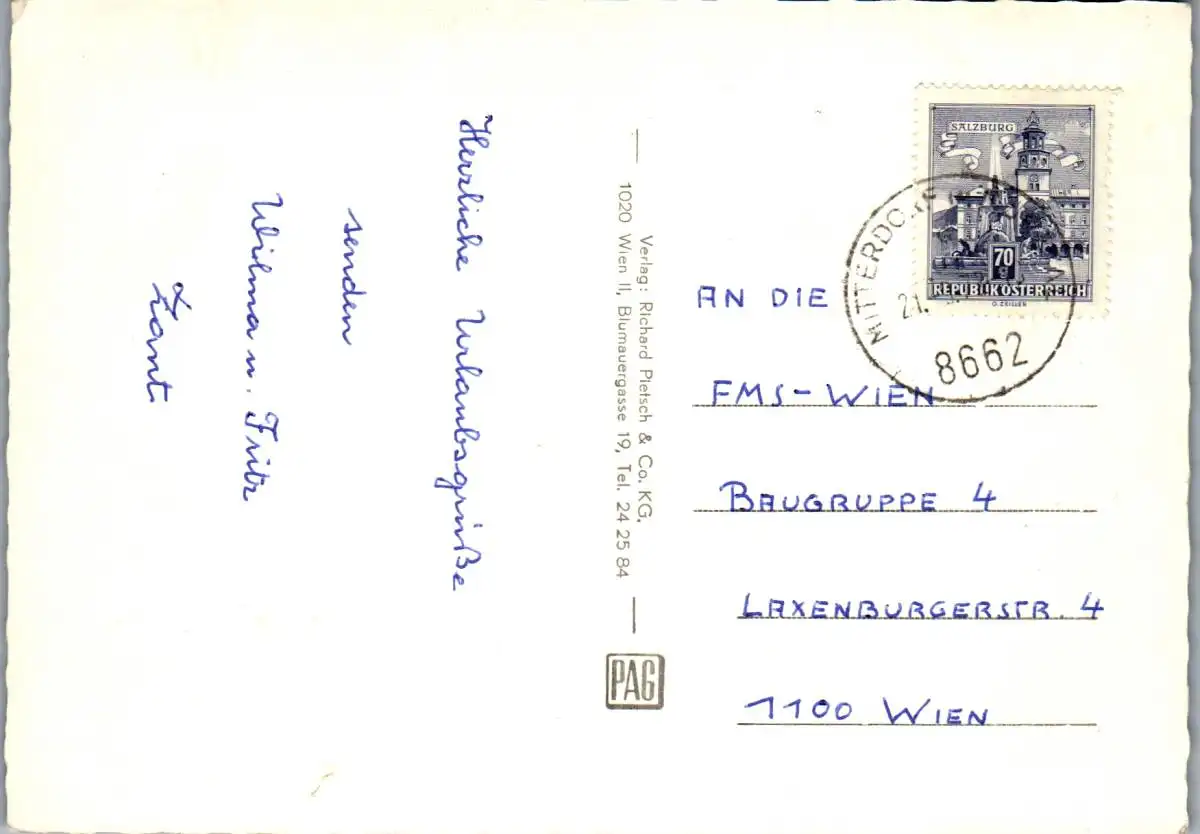 Herzliche Urlaubsgrüße
senden
Wilma u. Fritz
Verlag: Richard Pietsch & Co. KG,
1020 Wien II, Blumauergasse 19, Tel. 24 25 84
PAG
SALZBURG
70
g
REPUBLIK ÖSTERREICH
G. ZEILLER
MITTERDORF
21.
8662
AN DIE
FMS-WIEN
BAUGRUPPE 4
LAXENBURGERSTR. 4
1100 WIEN